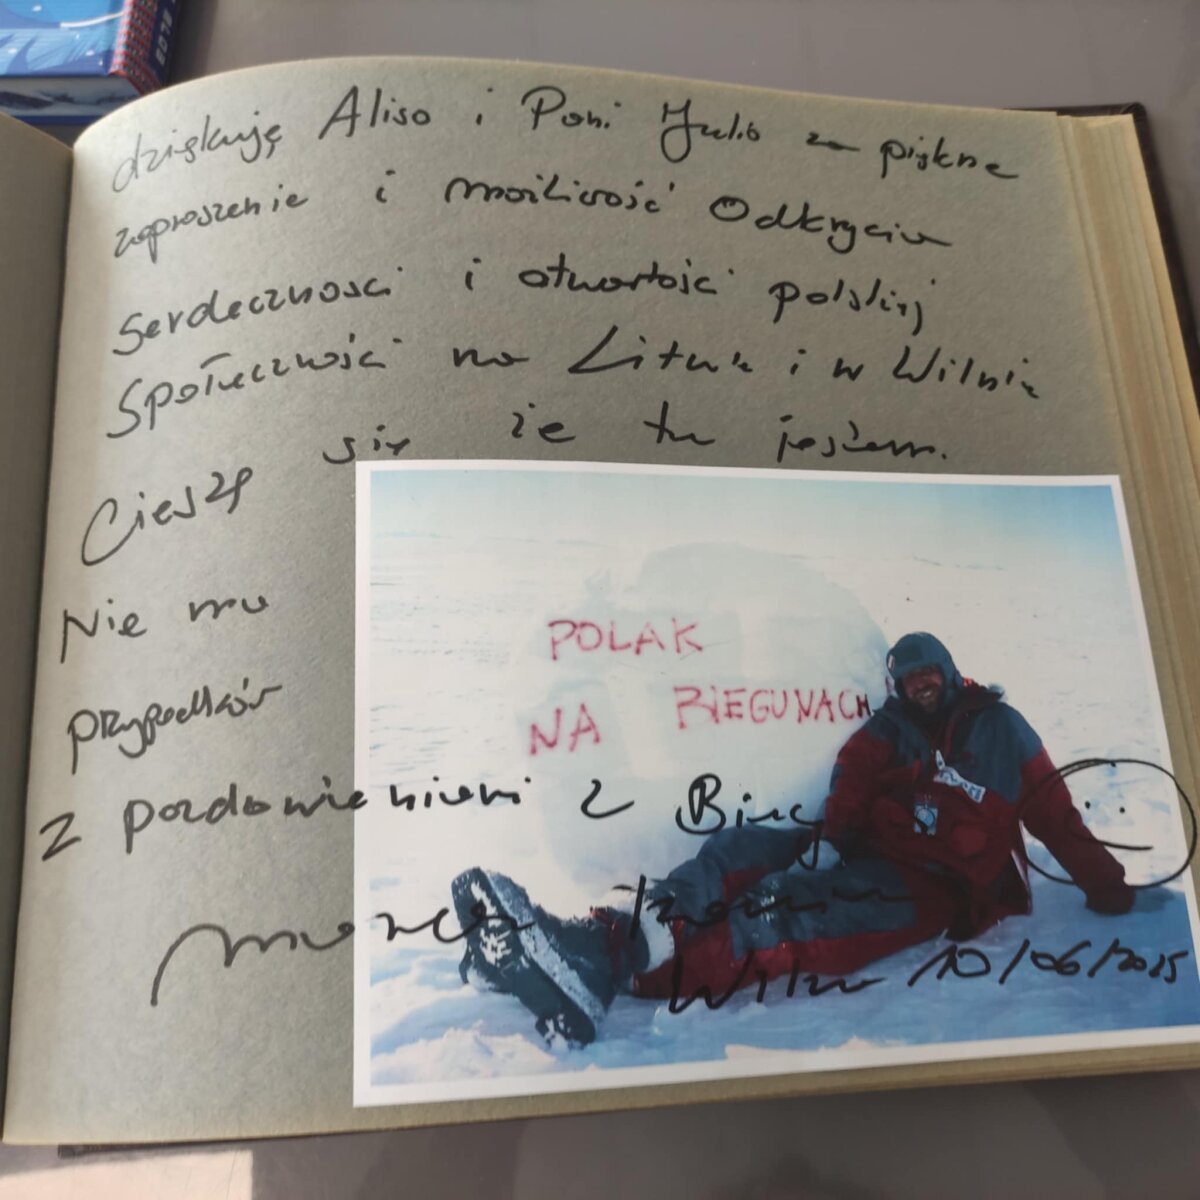 dziękuję Aliso i Pani Julio za piękne
zaproszenie i możliwość Odkrycia
Serdeczności i otwartości polskiej
Społeczności na Litwie i w Wilnie
Cieszę się że tu jestem.
Nie ma
przypadków
POLAK
NA BIEGUNACH
Z pozdrowieniami z Bieg
Marek Kamiński
Wilno 10/06/2025